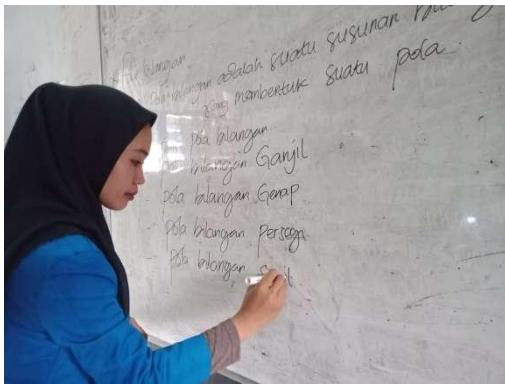 Pola bilangan
Pola bilangan adalah suatu susunan
yang membentuk suatu pola.
pola bilangan
bilangan Ganjil
pola bilangan Genap
pola bilangan persegi
Pola bilangan